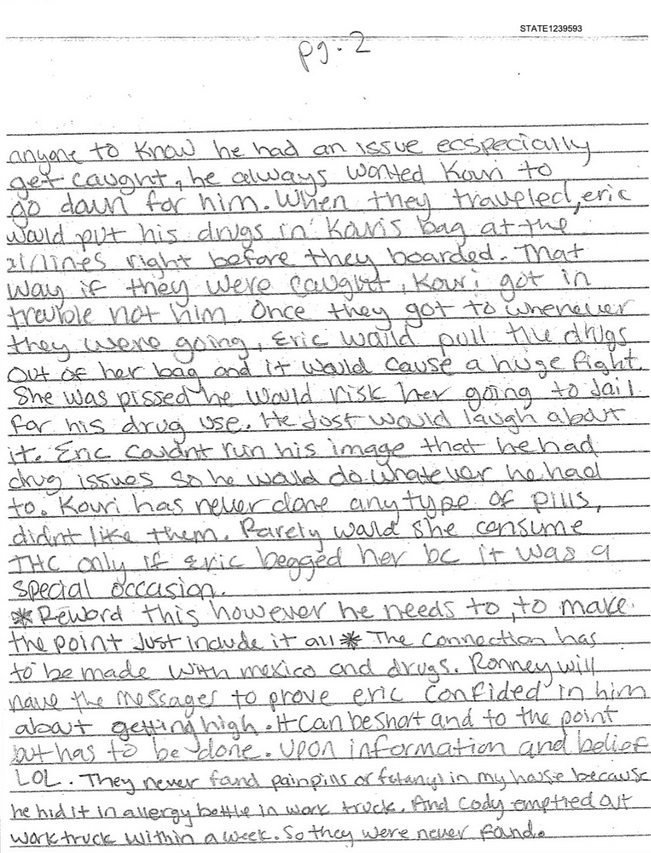 STATE1239593
pg. 2
anyone to know he had an issue ecspecially
get caught, he always wanted Kouri to
go down for him. When they traveled, eric
would put his drugs in Kouris bag at the
airlines right before they boarded. That
way if they were caught, Kouri got in
trouble not him. Once they got to whenever
they were going, Eric would pull the drugs
out of her bag and it would cause a huge fight.
She was pissed he would risk her going to Jail
for his drug use. He Just would laugh about
it. Eric couldnt ruin his image that he had
drug issues so he would do whatever he had
to. Kouri has never done any type of pills,
didnt like them. Rarely would she consume
THC only if Eric begged her bc it was a
special occasion.
*Reword this however he needs to, to make
the point Just include it all* The connection has
to be made with mexico and drugs. Ronney will
have the messages to prove eric confided in him
about getting high. It can be short and to the point
but has to be done. Upon information and belief
LOL. They never found painpills or fetanyl in my house because
he hid it in allergy bottle in work truck. And Cody emptied out
work truck within a week. So they were never found.